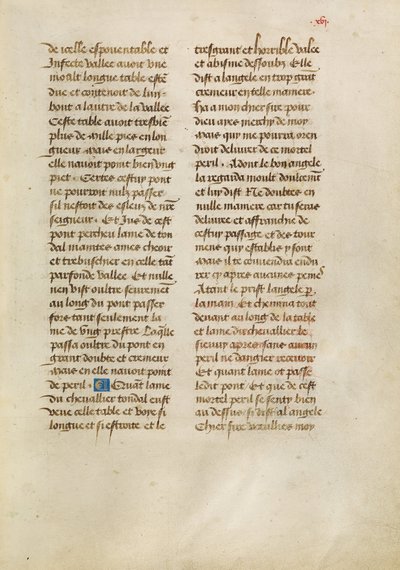 .xvi.
de icelle espouentable et
Infecte vallee auoit vne
moult longue table esten
due et contenoit de lun
bout a lautre de la vallee
Ceste table auoit tresbien
plus de mille pies en lon
gueur Mais en largeur
elle nauoit point bien vng
piet . Certes cestuy pont
ne pouroit nulz passer
sil nestoit des esleuz de nre
seigneur . Et Jus de cest
pont percheu lame de ton
dal maintes ames cheoir
et trebuschier en celle tant
parfonde vallee Et nulle
nen vist oultre seurement
au long du pont passer
fors tant seulement la
me de vng prestre Laqlle
passa oultre du pont en
grant doubte et cremeur
Mais en elle nauoit point
de peril . Quant lame
du cheuallier tondal eust
veue celle table et voye si
longue et si estroite et le
tresgrant et horrible valee
et abisme dessoubz Elle
dist a langele en trop grant
cremeur en telle maniere .
Ha a mon chier sire pour
dieu ayes merchy de moy
Mais qui me pourra oren
droit deliurer de ce mortel
peril . Adont le bon angele
la regarda moult doulcement
et luy dist Ne doubtes en
nulle maniere car tu seras
deliure et affranchie de
cestuy passage et des tour
mens qui establis y sont
Mais il te conuiendra endu
rer cy apres aucunes peines
Atant le prist langele p
la main Et chemina tout
deuant au long de la table
et lame du cheuallier le
sieuuy apres sans aucun
peril ne dangier receuoir
Et quant lame ot passe
ledit pont Et que de cest
mortel peril se senty bien
au dessus si dist al angele
Chier sire vueillies moy